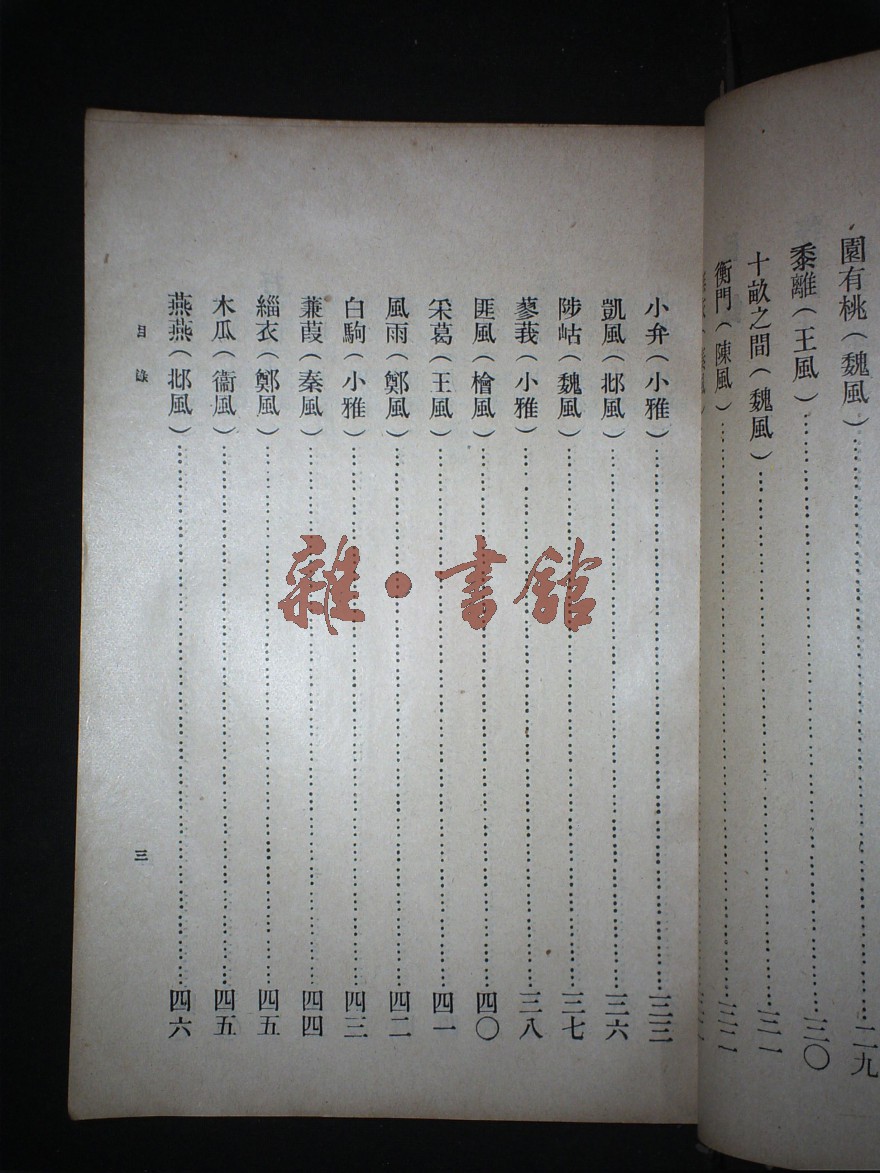 園有桃（魏風）……二九
黍離（王風）……三〇
十畝之間（魏風）……三一
衡門（陳風）……三二
小弁（小雅）……三三
凱風（邶風）……三六
陟岵（魏風）……三七
蓼莪（小雅）……三八
匪風（檜風）……四〇
采葛（王風）……四一
風雨（鄭風）……四二
白駒（小雅）……四三
蒹葭（秦風）……四四
緇衣（鄭風）……四五
木瓜（衞風）……四五
燕燕（邶風）……四六
目錄
三
雜·書館